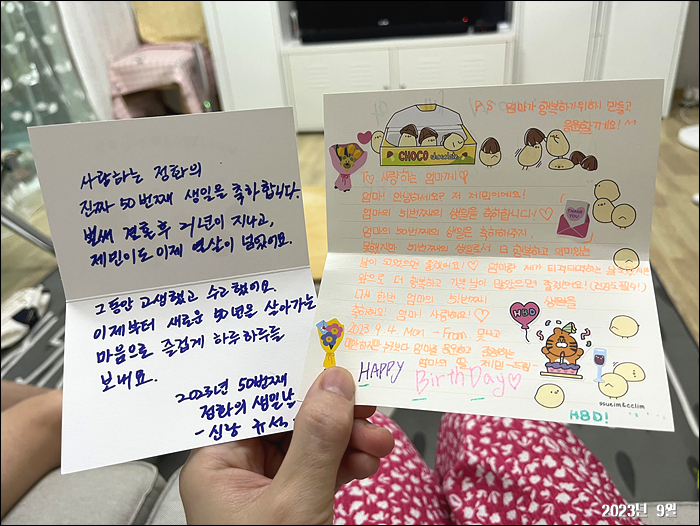 사랑하는 정화의
진짜 50번째 생일을 축하합니다.
벌써 결혼후 거년이 지나고,
제민이도 이제 열살이 넘었어요.
그동안 고생했고 수고했어요.
이제부터 새로운 50년을 살아가는
마음으로 즐겁게 하루하루를
보내요.
2023년 50번째
정화의 생일날
-신랑 규석.
P.S 엄마가 행복하기위해 힘들고
응원할게요! ^^
CHOCO chocolate
♡ 사랑하는 엄마께! ♡
엄마! 안녕하세요? 저 제민이에요!
엄마의 51번째의 생일을 축하합니다! ♡
엄마의 50번째의 생일은 축하해주지
못했지만 51번째의 생일로서 더 행복하고 재미있는
날이 되었으면 좋겠어요! ♡ 엄마랑 제가 티격태격하는
앞으로 더 행복하고 기쁜 날이 많았으면 좋겠어요!
다시 한번 엄마의 51번째 생일을
축하해요! 엄마! 사랑해요! ♡
2023. 9. 4. Mon. - From.
엄마의 딸 제민
THANK YOU
HBD
HAPPY Birth Day ♡
ssueim&cclim
HBD!
2023년 9월